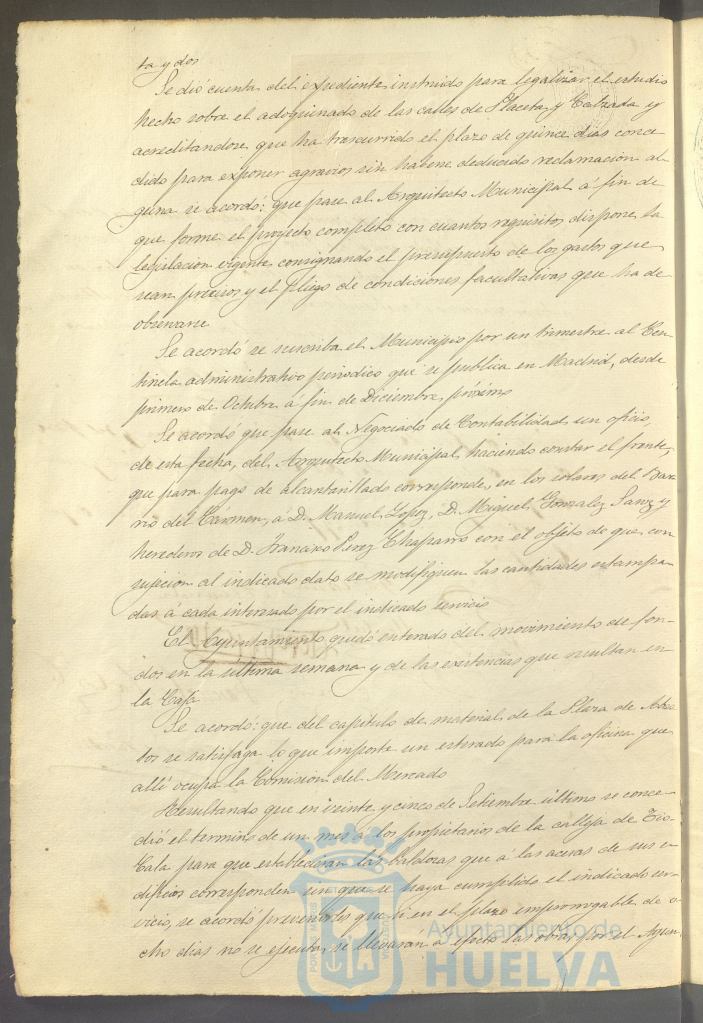 ta y dos
Se dió cuenta del expediente instruido para legalizar el estudio
hecho sobre el adoquinado de las calles de Placeta y Calzada y
acreditandose que ha trascurrido el plazo de quince dias conce
dido para exponer agravios sin haberse deducido reclamacion al
guna se acordó: que pase al Arquitecto Municipal á fin de
que forme el proyecto completo con cuantos requisitos dispone la
legislacion vigente consignando el presupuesto de los gastos que
sean precisos y el pliego de condiciones facultativas que ha de
observarse
Se acordó se suscriba el Municipio por un trimestre al Cen
tinela administrativo periodico que se publica en Madrid, desde
primero de Octubre á fin de Diciembre próximo
Se acordó que pase al Negociado de Contabilidad un oficio,
de esta fecha, del Arquitecto Municipal, haciendo constar el frente,
que para pago de alcantarillado corresponde, en los solares del Bar
rio del Cármen, á D. Manuel Lopez, D. Miguel Gonzalez Sanz y
herederos de D. Francisco Perez Chaparro con el objeto de que con
sujecion al indicado dato se modifiquen las cantidades estampa
das á cada interesado por el indicado servicio
El Ayuntamiento quedó enterado del movimiento de fon-
dos en la ultima semana y de las existencias que resultan en
la Caja
Se acordó: que del capitulo de material de la Plaza de Abas
tos se satisfaga lo que importe un esterado para la oficina que
allí ocupa la Comision del Mercado
Resultando que en veinte y cinco de Setiembre último se conce-
dió el termino de un mes á los propietarios de la calleja de Tio-
Cala para que establecieran las baldosas que á las aceras de sus e
dificios corresponden sin que se haya cumplido el indicado ser-
vicio, se acordó prevenirles que si en el plazo improrrogable de o-
cho dias no se ejecuta, se llevarán á efecto las obras por el Ayun-
Ayuntamiento de
HUELVA